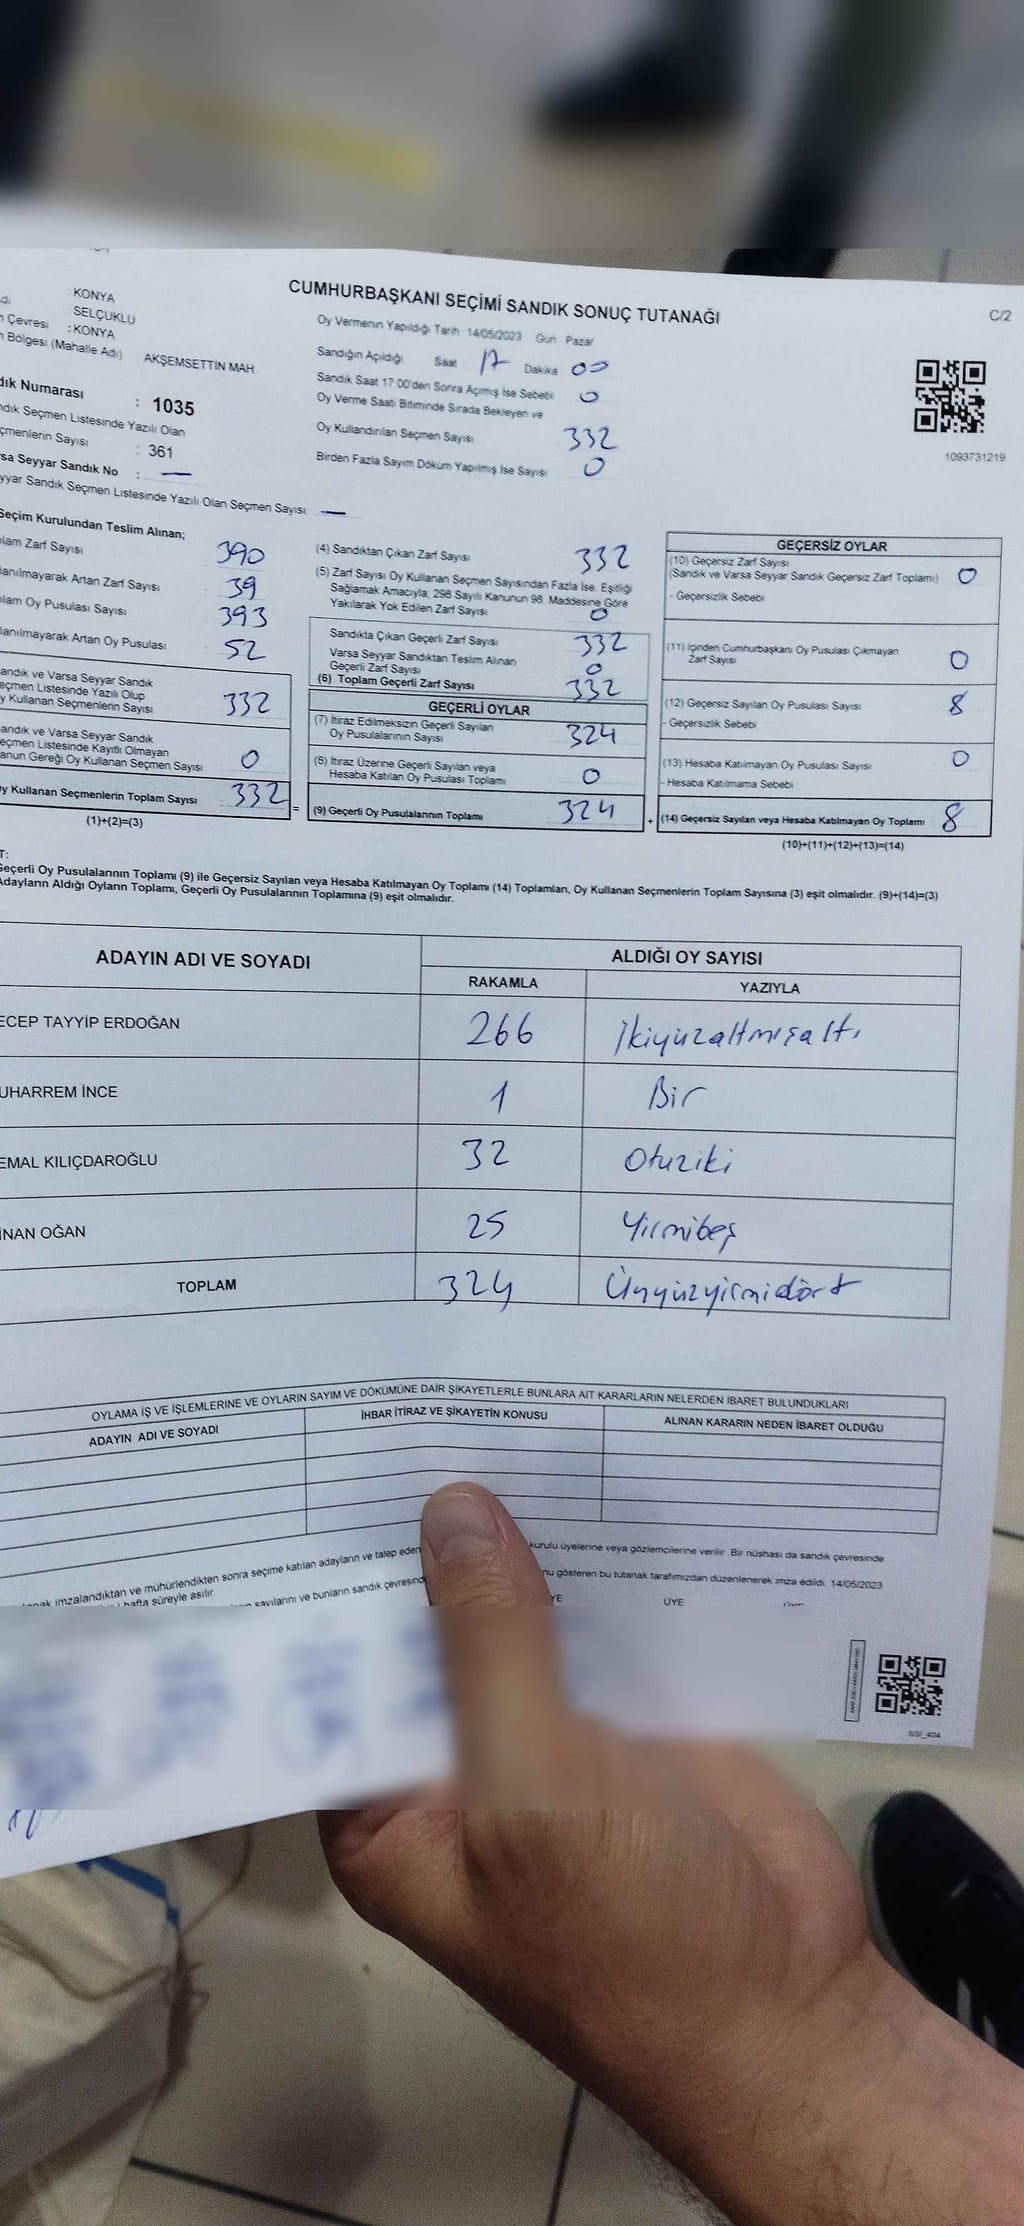 CUMHURBAŞKANI SEÇİMİ SANDIK SONUÇ TUTANAĞI
C/2
KONYA
: SELÇUKLU
Çevresi : KONYA
Bölgesi (Mahalle Adı) AKŞEMSETTİN MAH
Numarası : 1035
Seçmen Listesinde Yazılı Olan
Sayısı : 361
Seyyar Sandık No : —
Sandık Seçmen Listesinde Yazılı Olan Seçmen Sayısı: —
Oy Vermenin Yapıldığı Tarih 14/05/2023 Gün Pazar
Sandığın Açıldığı Saat 17 Dakika 00
Sandık Saat 17:00'den Sonra Açmış İse Sebebi 0
Oy Verme Saati Bitiminde Sırada Bekleyen ve
Oy Kullandırılan Seçmen Sayısı 332
Birden Fazla Sayım Döküm Yapılmış İse Sayısı 0
1093731219
Seçim Kurulundan Teslim Alınan;
Zarf Sayısı 390
Artan Zarf Sayısı 39
Oy Pusulası Sayısı 393
Artan Oy Pusulası 52
ve Varsa Seyyar Sandık
Listesinde Yazılı Olup
Kullanan Seçmenlerin Sayısı 332
ve Varsa Seyyar Sandık
Listesinde Kayıtlı Olmayan
Gereği Oy Kullanan Seçmen Sayısı 0
Kullanan Seçmenlerin Toplam Sayısı 332
(1)+(2)=(3)
=
(4) Sandıktan Çıkan Zarf Sayısı 332
(5) Zarf Sayısı Oy Kullanan Seçmen Sayısından Fazla İse, Eşitliği
Sağlamak Amacıyla; 298 Sayılı Kanunun 98. Maddesine Göre
Yakılarak Yok Edilen Zarf Sayısı 0
Sandıkta Çıkan Geçerli Zarf Sayısı 332
Varsa Seyyar Sandıktan Teslim Alınan
Geçerli Zarf Sayısı 0
(6) Toplam Geçerli Zarf Sayısı 332
GEÇERLİ OYLAR
(7) İtiraz Edilmeksizin Geçerli Sayılan
Oy Pusulalarının Sayısı 324
(8) İtiraz Üzerine Geçerli Sayılan veya
Hesaba Katılan Oy Pusulası Toplamı 0
(9) Geçerli Oy Pusulalarının Toplamı 324
+
GEÇERSİZ OYLAR
(10) Geçersiz Zarf Sayısı
(Sandık ve Varsa Seyyar Sandık Geçersiz Zarf Toplamı) 0
- Geçersizlik Sebebi
(11) İçinden Cumhurbaşkanı Oy Pusulası Çıkmayan
Zarf Sayısı 0
(12) Geçersiz Sayılan Oy Pusulası Sayısı 8
- Geçersizlik Sebebi
(13) Hesaba Katılmayan Oy Pusulası Sayısı 0
- Hesaba Katılmama Sebebi
(14) Geçersiz Sayılan veya Hesaba Katılmayan Oy Toplamı 8
(10)+(11)+(12)+(13)=(14)
Geçerli Oy Pusulalarının Toplamı (9) ile Geçersiz Sayılan veya Hesaba Katılmayan Oy Toplamı (14) Toplamları, Oy Kullanan Seçmenlerin Toplam Sayısına (3) eşit olmalıdır. (9)+(14)=(3)
Adayların Aldığı Oyların Toplamı, Geçerli Oy Pusulalarının Toplamına (9) eşit olmalıdır.
ADAYIN ADI VE SOYADI ALDIĞI OY SAYISI
RAKAMLA YAZIYLA
ECEP TAYYİP ERDOĞAN 266 İkiyüzaltmışaltı
UHARREM İNCE 1 Bir
EMAL KILIÇDAROĞLU 32 Otuziki
İNAN OĞAN 25 Yirmibeş
TOPLAM 324 Üçyüzyirmidört
OYLAMA İŞ VE İŞLEMLERİNE VE OYLARIN SAYIM VE DÖKÜMÜNE DAİR ŞİKAYETLERLE BUNLARA AİT KARARLARIN NELERDEN İBARET BULUNDUKLARI
ADAYIN ADI VE SOYADI İHBAR İTİRAZ VE ŞİKAYETİN KONUSU ALINAN KARARIN NEDEN İBARET OLDUĞU
imzalandıktan ve mühürlendikten sonra seçime katılan adayların ve talep eden kurulu üyelerine veya gözlemcilerine verilir. Bir nüshası da sandık çevresinde
hafta süreyle asılır.
sayılarını ve bunların sandık çevresinde gösteren bu tutanak tarafımızdan düzenlenerek imza edildi. 14/05/2023
ÜYE
SSI_404